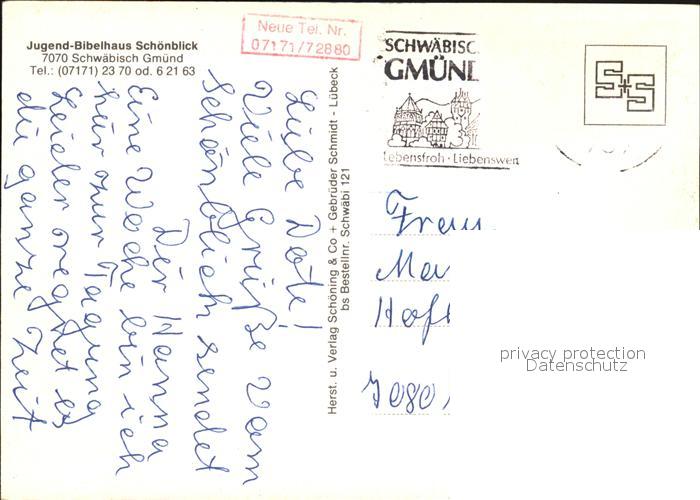 Jugend-Bibelhaus Schönblick
7070 Schwäbisch Gmünd
Tel.: (07171) 23 70 od. 6 21 63
Neue Tel. Nr.
07171/72880
Liebe Dote!
Viele Grüße vom
Schönblich sendet
Dir Hanna
Eine Woche bin ich
hier zur Tagung
Leider regnet es
die ganze Zeit
Herst. u. Verlag Schöning & Co + Gebrüder Schmidt - Lübeck
bs Bestellnr. Schwäbi 121
SCHWÄBISC
GMÜN
Lebensfroh · Liebenswert
S+S
Frau
Ma
7080,
privacy protection
Datenschutz